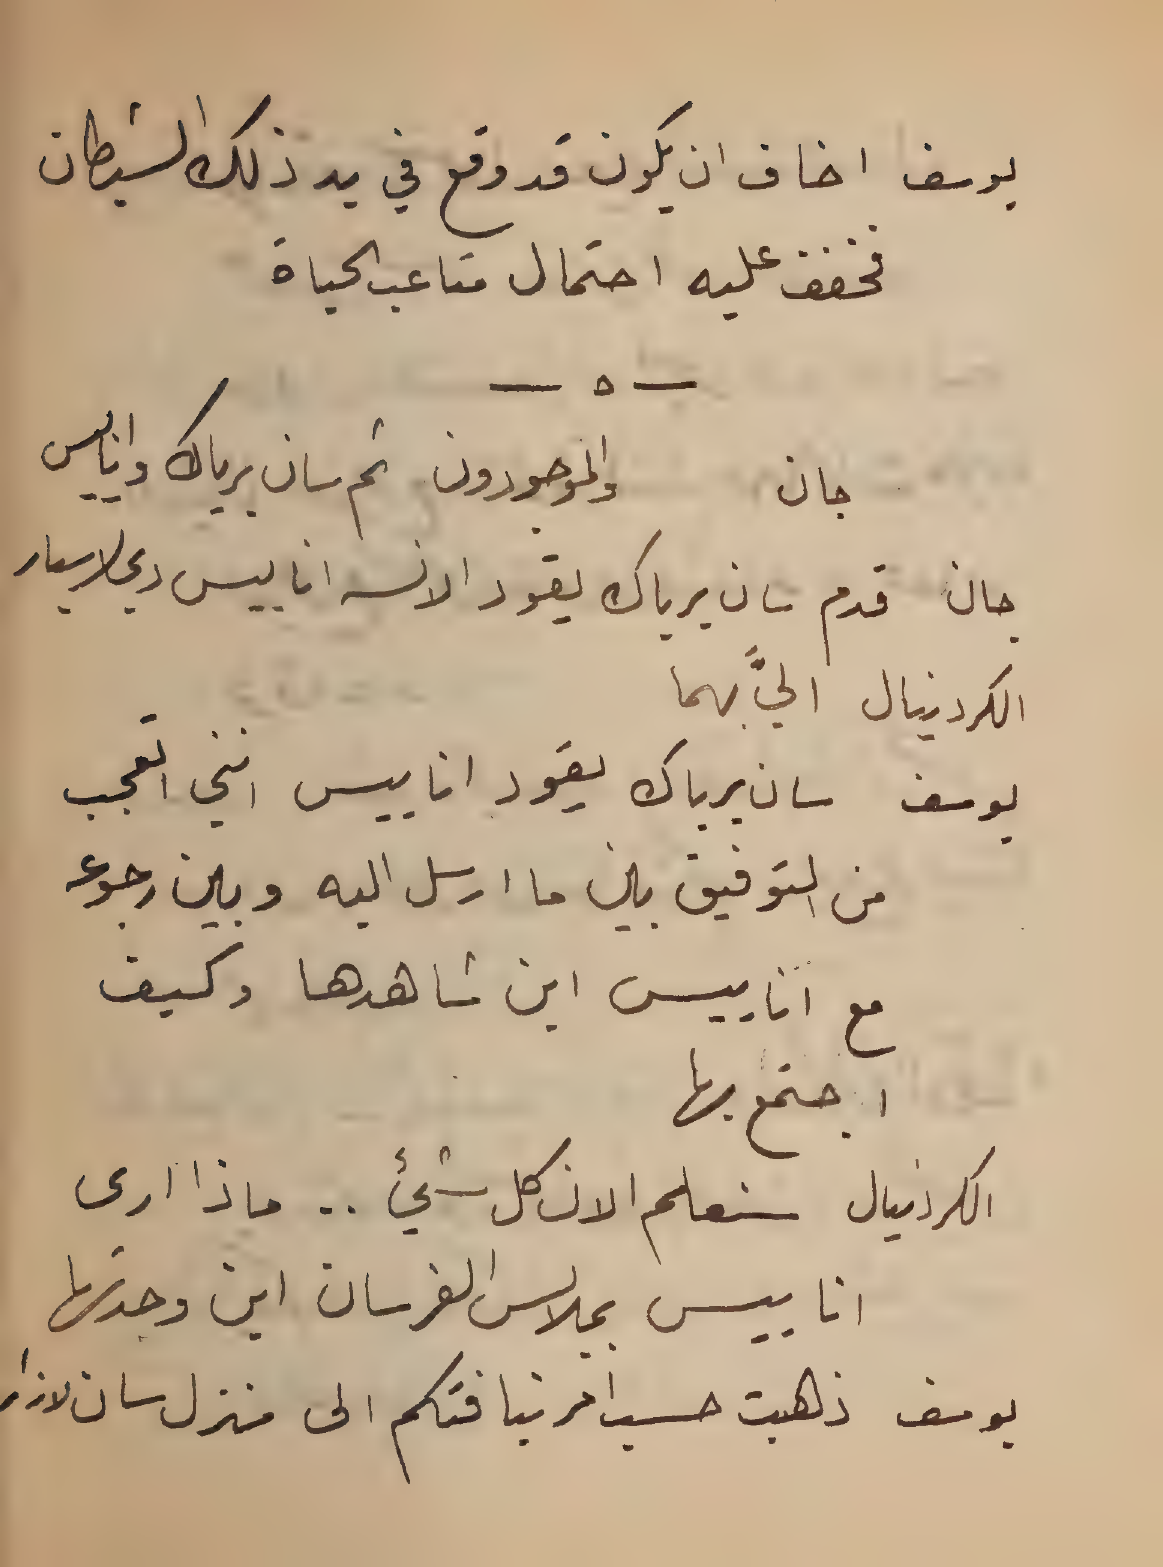 يوسف اخاف ان يكون قد وقع في يد ذلك الشيطان
فخفف عليه احتمال متاعب الحياة
— ه —
جان والموجودون ثم سان برياك واناييس
جان قدم سان برياك يقود الانسه اناييس دي لاسيار
الكردينال اليَّ بهما
يوسف سان برياك يقود اناييس انني اتعجب
من التوفيق بين ما ارسل اليه وبين رجوعه
مع اناييس اين شاهدها وكيف
اجتمع بها
الكردنيال سنعلم الان كل شيئ .. ماذا ارى
اناييس بملابس الفرسان اين وجدتها
يوسف ذهبت حسب امر نيافتكم الى منزل سان لازار